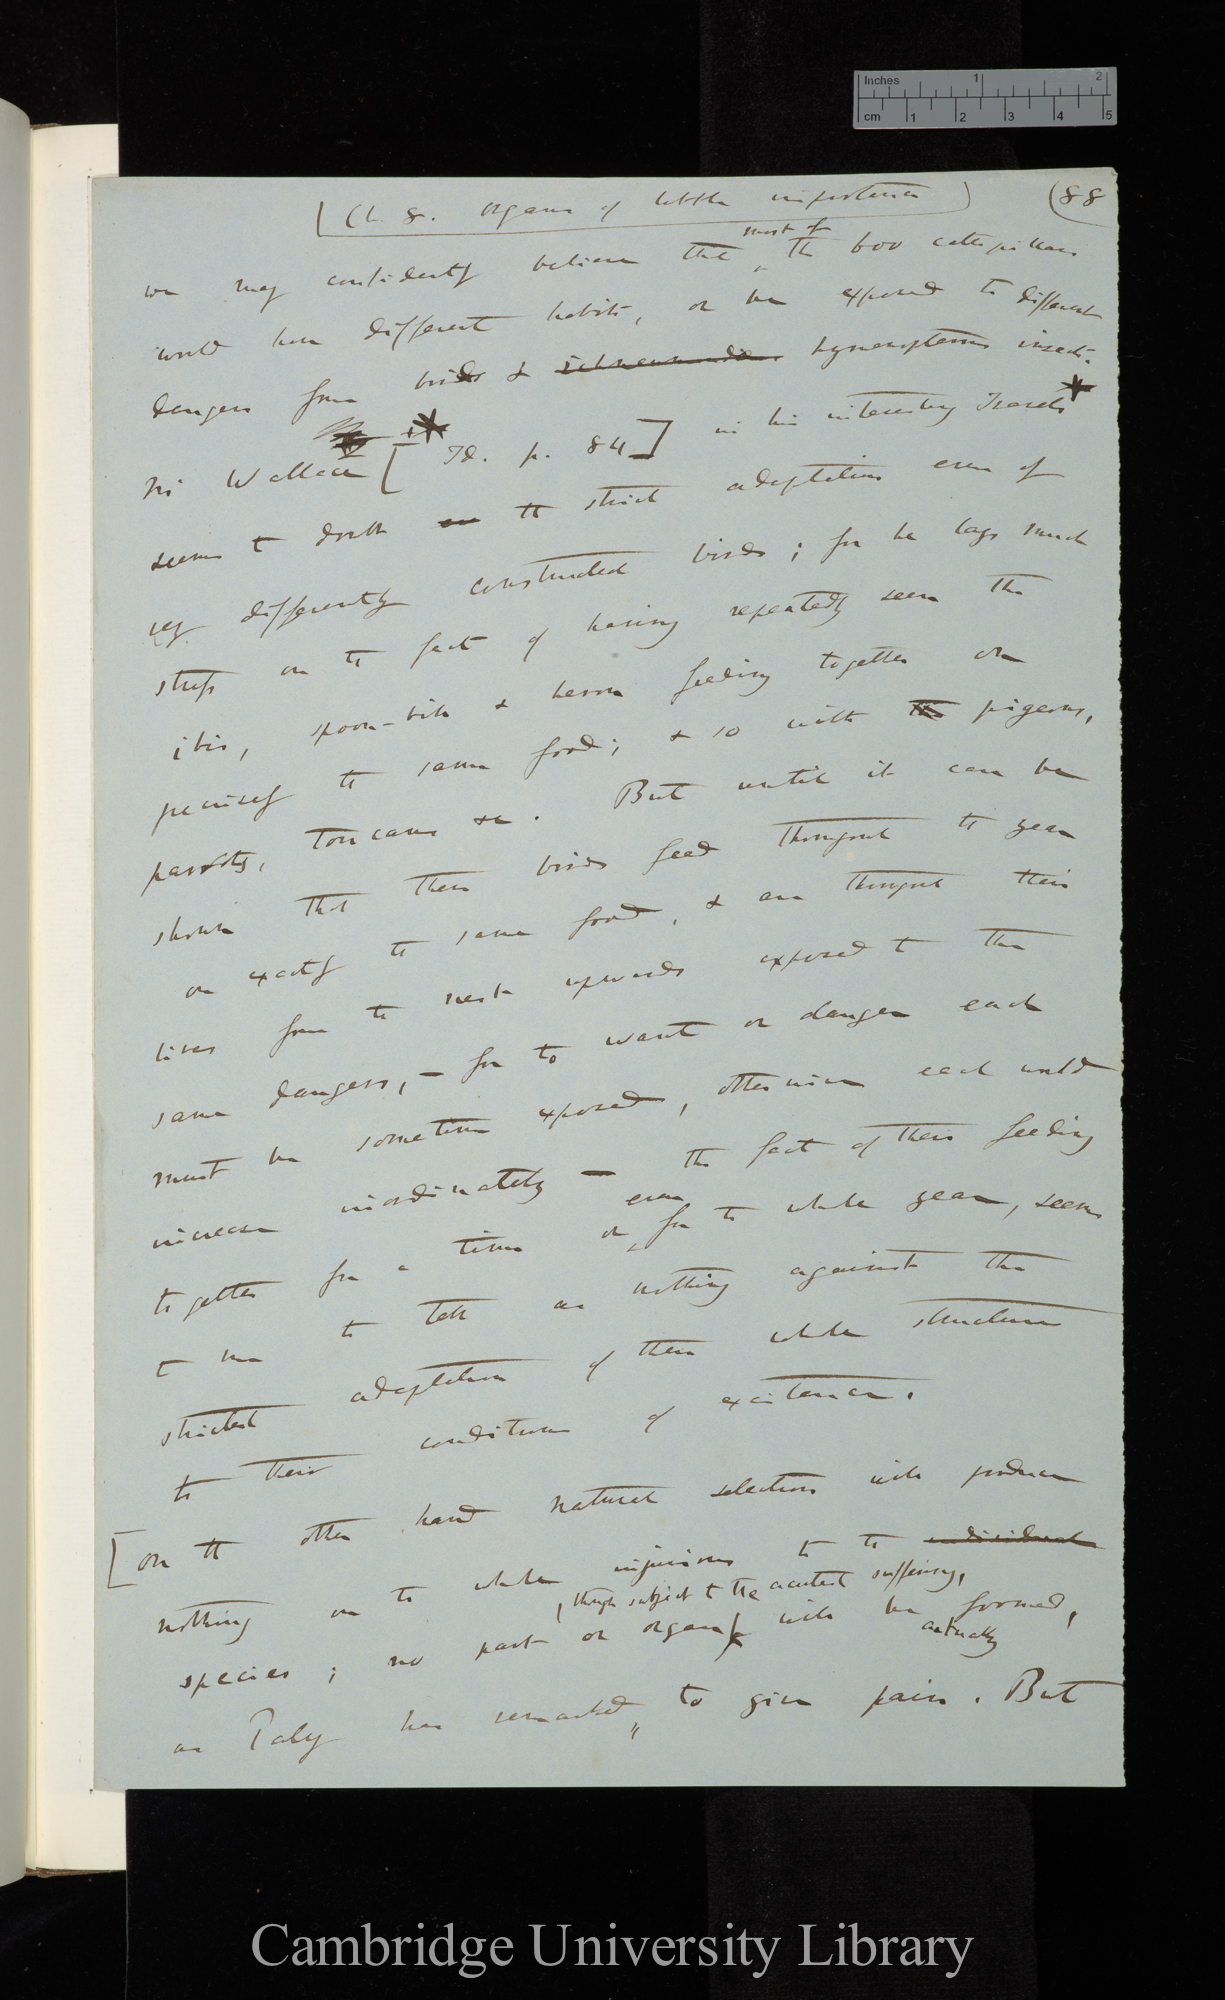 Inches 1 2
cm 1 2 3 4 5
(Ch. 8. Organs of little importance) (88
we may confidently believe that most of the 600 caterpillars
would have different habits, or be exposed to different
dangers from birds & ichneumonidae hymenopterous insects.
Mr Wallace [* Id. p. 84] in his interesting Travels*
seems to doubt on the strict adaptation even of
very differently constructed birds; for he lays much
stress on the fact of having repeatedly seen the
ibis, spoon-bill & heron feeding together on
precisely the same food; & so with the pigeons,
parrots, toucans &c. But until it can be
shown that these birds feed throughout the year
on exactly the same food, & are throughout their
lives from the nest upwards exposed to the
same dangers,— for to want or danger each
must be sometime exposed, otherwise each would
increase inordinately — the fact of their feeding
together for a time or even for the whole year, seems
to me to tell as nothing against the
strictest adaptation of their whole structure
to their conditions of existence.
[On the other hand natural selection will produce
nothing on the whole injurious to the individual
species; no part or organ, though subject to the acutest suffering, will be formed,
as Paley has remarked, actually to give pain. But
Cambridge University Library